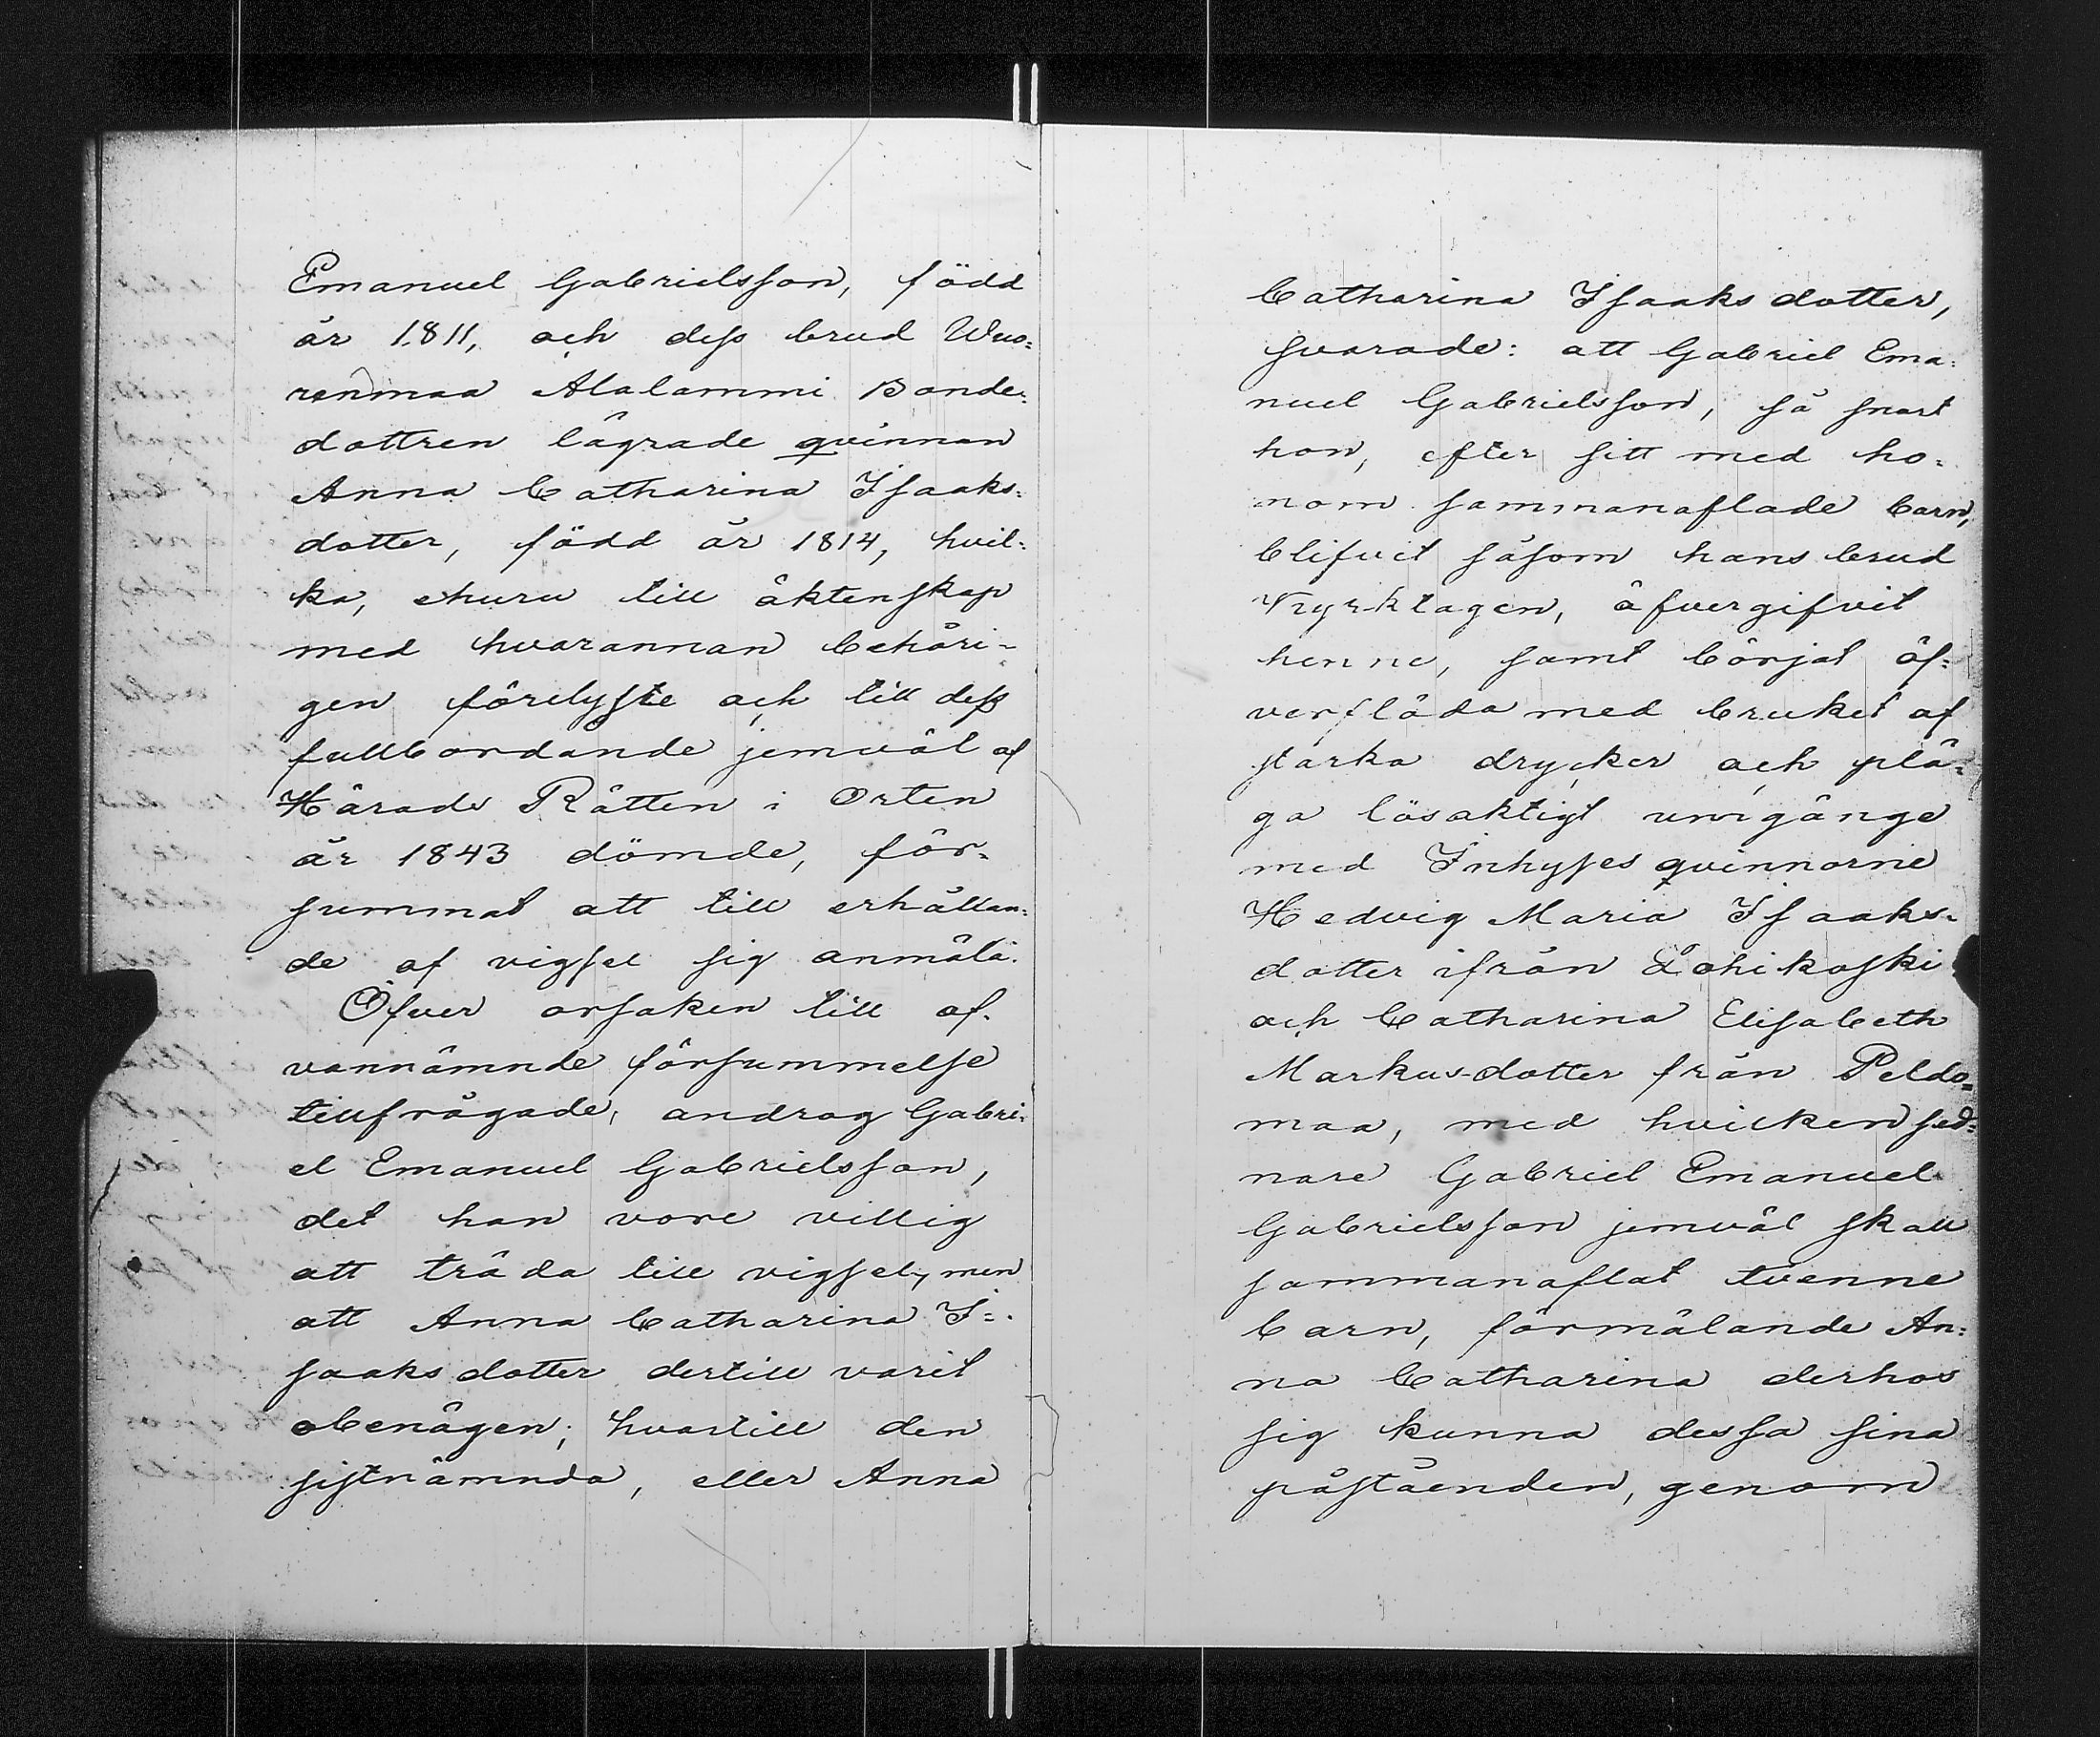 Emanuel Gabrielsson, född
år 1811, och dess brud Wuo=
renmaa Alalammi Bonde=
dottren lägrade qvinnan
Anna Catharina Isaaks=
dotter, född år 1814, hvil=
ka, ehuru till äktenskap
med hvarannan behöri=
gen förelyste och till dess
fullbordande jemväl af
Härads Rätten i Orten
år 1843 dömde, för=
summat att till erhållan=
de af vigsel sig anmäla.
Öfver orsaken till of=
vannämnde försummelse
tillfrågade, androg Gabri=
el Emanuel Gabrielsson,
det han vore villig
att träda till vigsel, men
att Anna Catharina I=
saaksdotter dertill varit
obenägen; hvartill den
sistnämnda, eller Anna
Catharina Isaaksdotter,
svarade: att Gabriel Ema=
nuel Gabrielsson, så snart
hon, efter sitt med ho=
nom sammanaflade barn,
blifvit såsom hans brud
Kyrktagen, öfvergifvit
henne, samt börjat öf=
verflöda med bruket af
starka drycker och plä=
ga lösaktigt umgänge
med Inhyses qvinnorne
Hedvig Maria Isaaks=
dotter ifrån Lohikoski
och Catharina Elisabeth
Markus-dotter från Peldo=
maa, med hvilken sed=
nare Gabriel Emanuel
Gabrielsson jemväl skall
sammanaflat tvenne
barn, förmälande An=
na Catharina derhos
sig kunna dessa sina
påståenden, genom